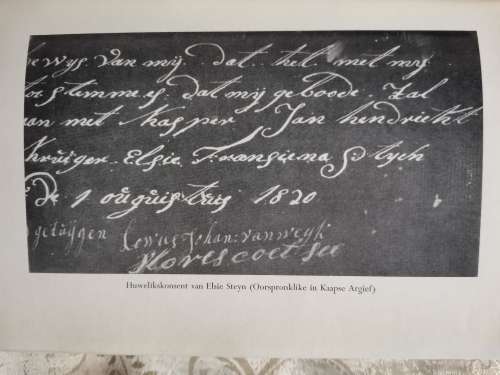 bewys van mij dat het met mij
toestemme es. dat mij geboode. Zal
aan met Kasper Jan hendrickt
Kruiger. Elsie. Fransiena Stych
de 1 ouguistus 1820
getuygen Lowies Johan: van wyk
Flores coetsee
Huwelikskonsent van Elsie Steyn (Oorspronklike in Kaapse Argief)